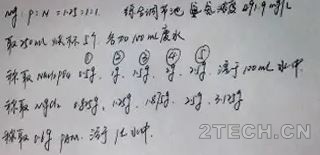 Mg : P : N = 1.25 : 1 : 1 综合调节池 氨氮浓度 291.9 mg/L
取250ml烧杯5个, 各加100ml废水
① ② ③ ④ ⑤
称取 0.5g, 1g, 1.5g, 2g, 2.5g, 溶于100mL水中
称取MgCl₂ 0.625g, 1.25g, 1.875g, 2.5g, 3.125g
称取 PAM, 溶于1L水中.
2TECH.CN